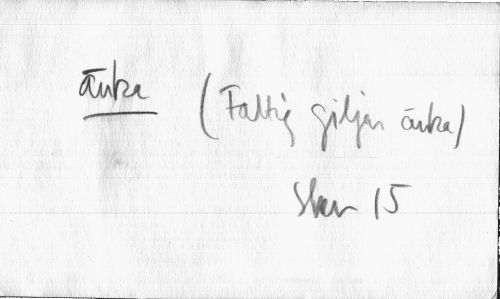 änka (Fattig giljar änka)
Skara 15